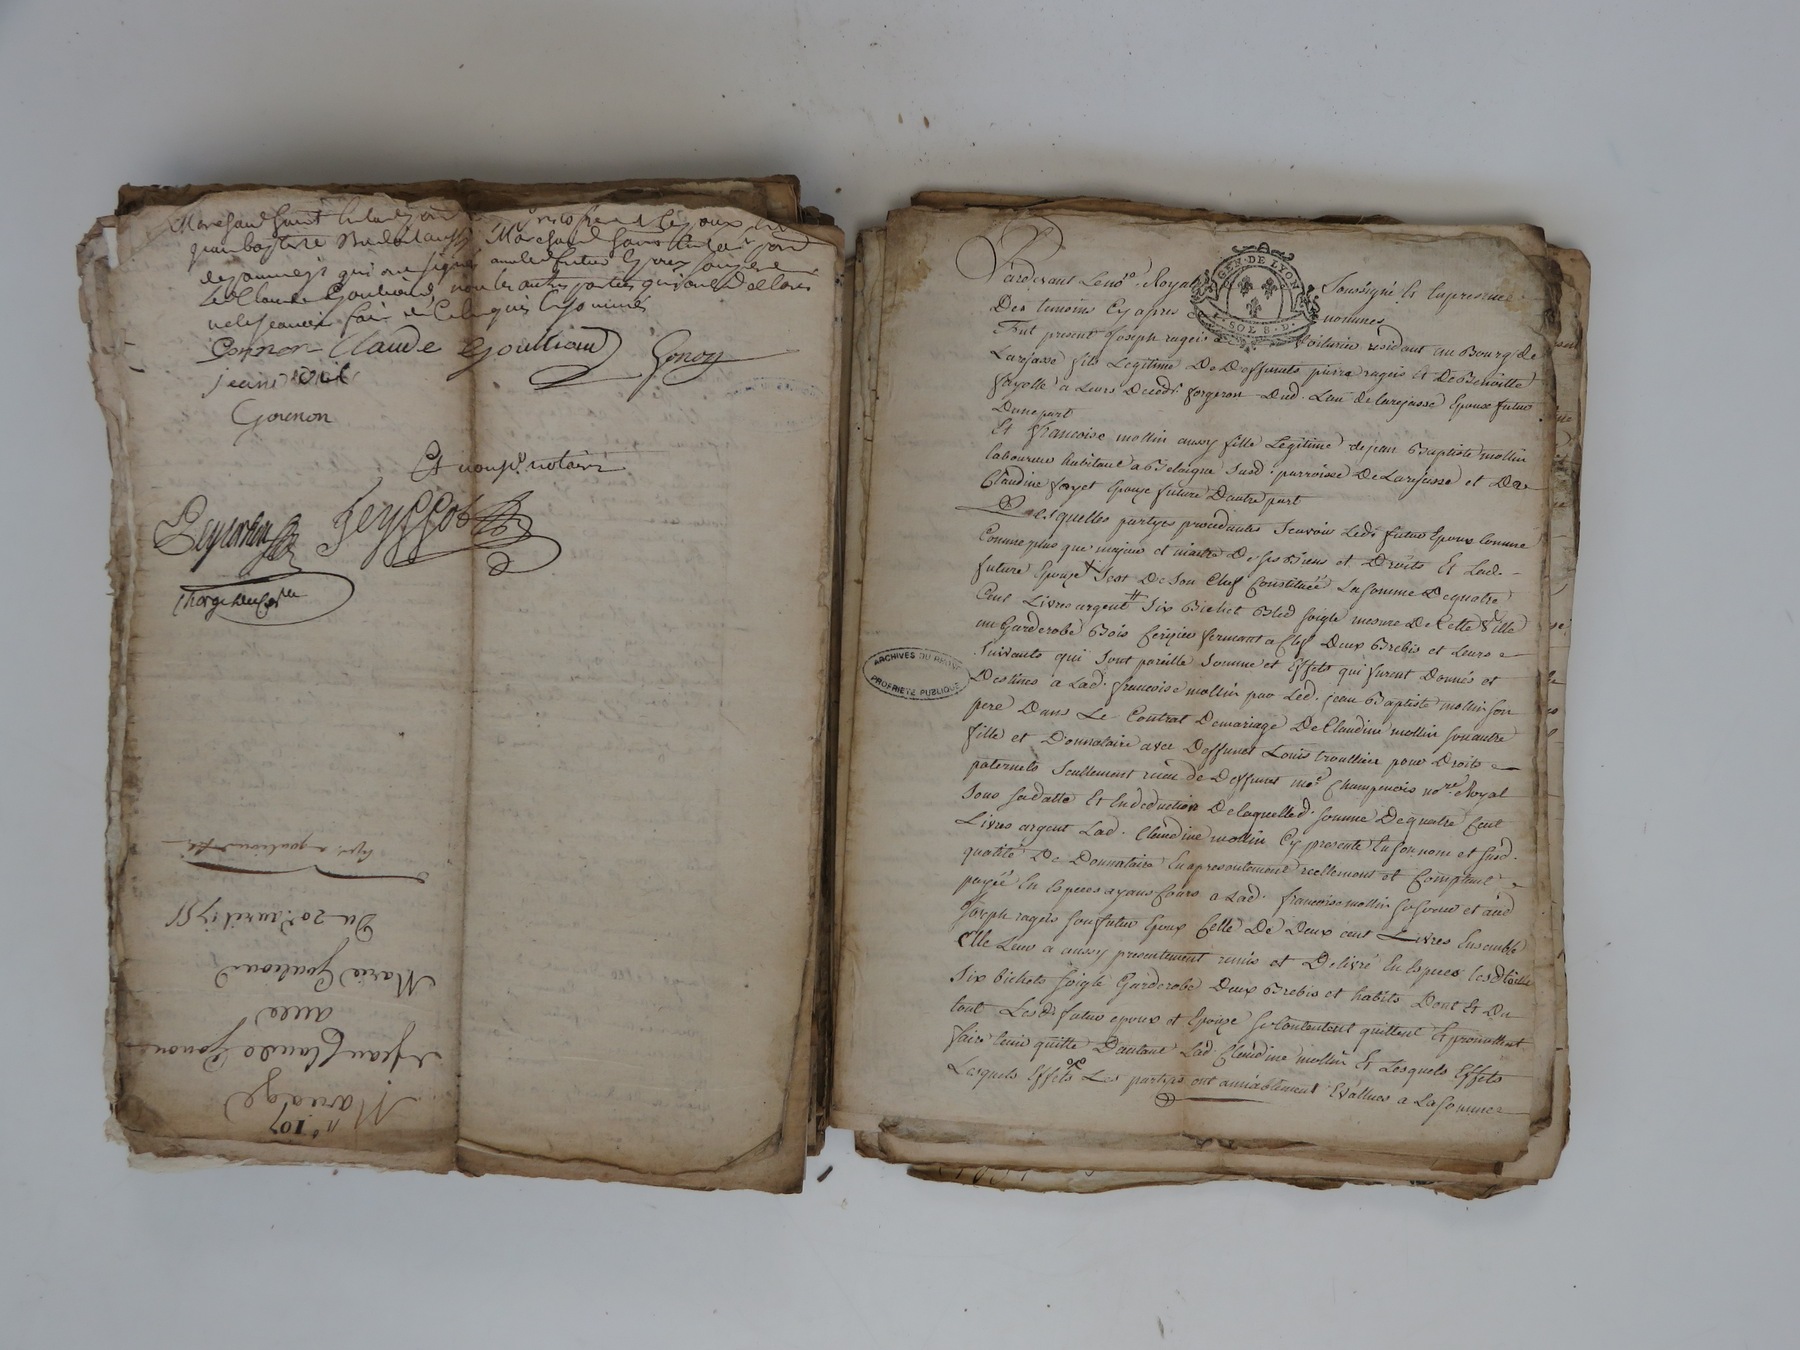 Marchand
jean baptiste Marchand
qui ont signé avec le futur Epoux
Claude Goulliond, non les autres parties qui ont Declaré
ne le scavoir faire de Ce Enquis et sommés
Gonnon Claude Goulliond Gonon
jean
Gounon
Et nousd. notaire
Peyssot
n.° 107
Mariage
Jean Claude Gonon
avec
Marie Goulliond
Du 20e avril
GEN. DE LYON
SOL 8. D.
Pardevant Le no.e Royal Soussigné Et En presence
Des temoins Cy apres nommés
Fut present Joseph rageis voiturier residant au Bourg de
Larejasse fils Legitime De Deffunts pierre rageis Et De Benoitte
fayolle a Leurs Deceds forgeron Dud. Lieu de Larejasse Epoux futur
Dune part
Et francoise mollin aussy fille Legitime de jean Baptiste mollin
laboureur habitant a susd. parroisse De Larejasse et De
Claudine fayet Epouze future Dautre part
Lesquelles partyes procedantes Scavoir Ledt futur Epoux Comme
Comme plus que majeur et maitre De ses Biens et Droits Et Lad.
future Epouze Sest De Son Chef Constituée La somme De quatre
Cent Livres argent Six Bichet Bled soigle mesure De Cette Ville
un Garderobe Bois Cerizier fermant a Clef Deux Brebis et Leurs
suivants qui sont pareille Somme et Effets qui furent Donnés et
Destinés a Lad. francoise mollin par Led. jean Baptiste mollin son
pere Dans Le Contrat De mariage De Claudine mollin son autre
fille et Donnataire avec Deffunt Louis troullier pour Droits
paternels Seullement recu de Deffunt me. Champenois no.re Royal
Sous sa datte Et En deduction De laquelled. somme De quatre Cent
Livres argent Lad. Claudine mollin Cy presente En son nom et susd.
qualité De Donnataire En a presentement reellement et Comptant
payée En Especes ayant Cours a Lad. francoise mollin sa soeur et aud
Joseph rageis son futur Epoux Celle De Deux cent Livres Ensemble
Elle Leur a aussy presentement remis et Delivré En Especes Lesd
Six bichets soigle Garderobe Deux Brebis et habits Dont Et Du
tout Lesd. futur epoux et Epouze se Contentent quittent Et promettent
faire tenir quitte Dautant Lad. Claudine mollin Et Lesquels Effets
Lesquels Effets Les partyes ont amiablement Evallues a La somme
ARCHIVES DU RHONE
PROPRIETE PUBLIQUE